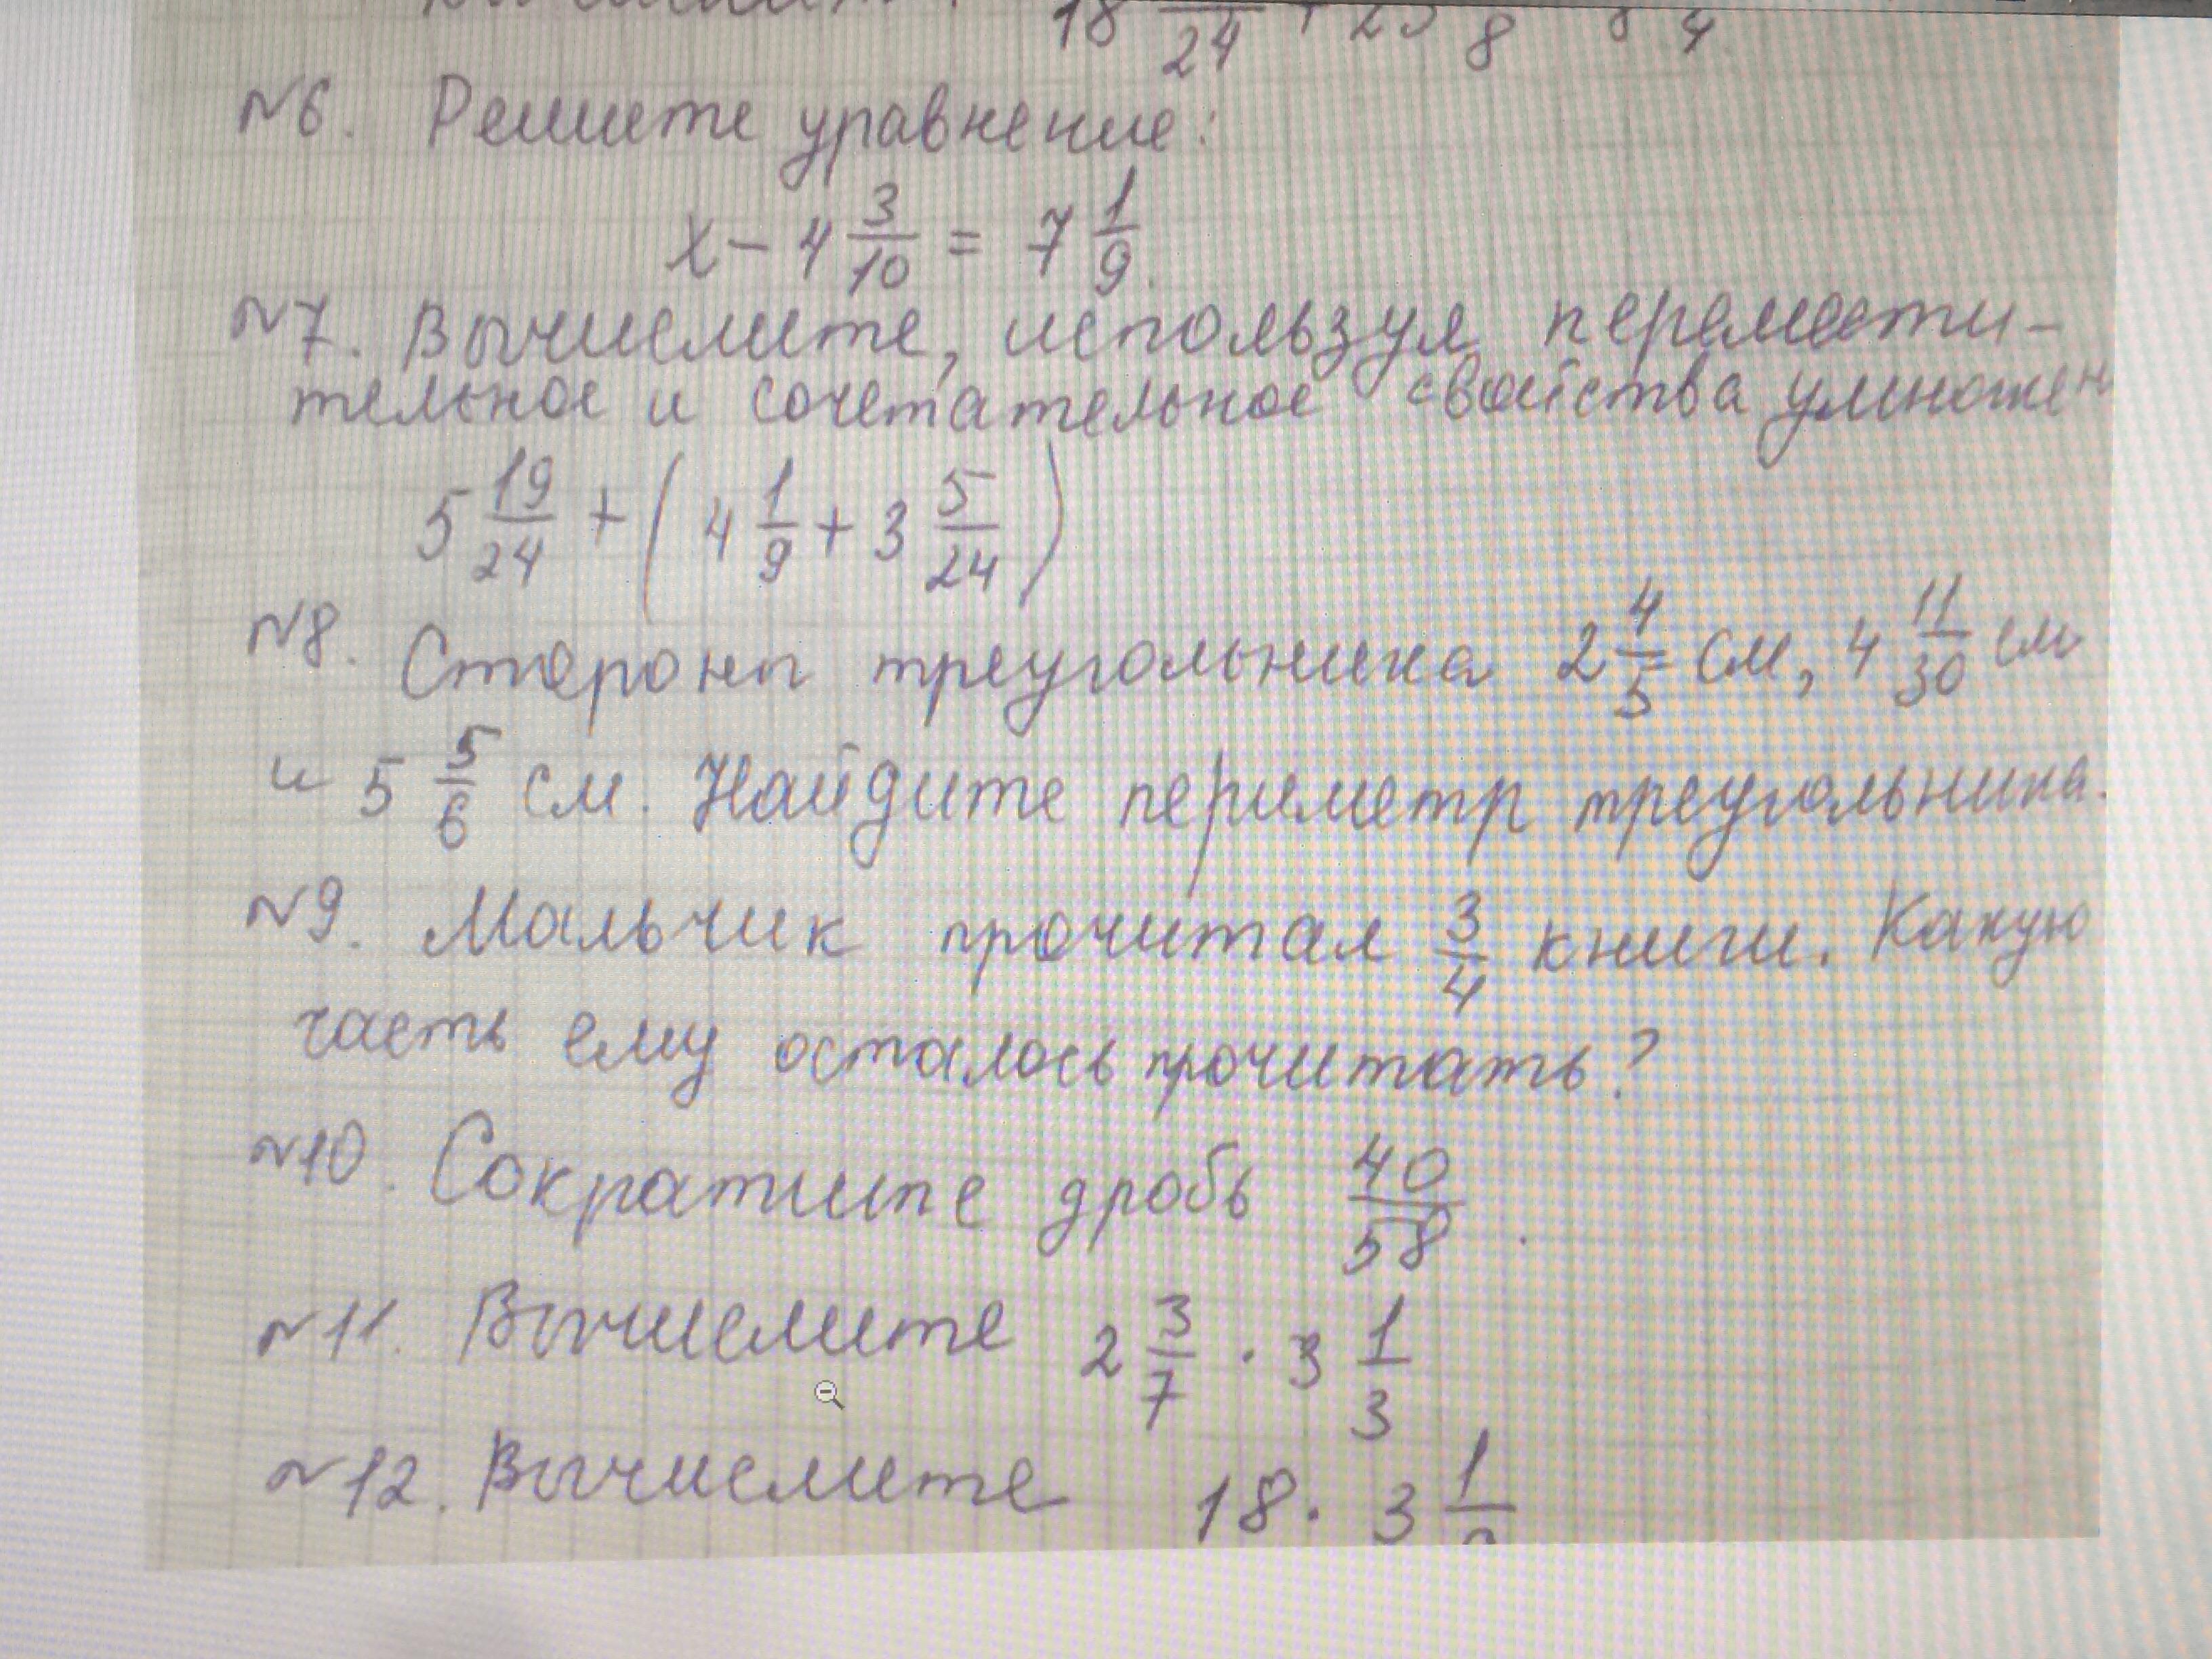 18 24 + 25 8 8 4
№6. Решите уравнение:
x - 4 3/10 = 7 1/9.
№7. Вычислите, используя перемести-
тельное и сочетательное свойства умножен
5 19/24 + (4 1/9 + 3 5/24)
№8. Стороны треугольника 2 4/5 см, 4 11/30 см
и 5 5/6 см. Найдите периметр треугольника.
№9. Мальчик прочитал 3/4 книги. Какую
часть ему осталось прочитать?
№10. Сократите дробь 40/58.
№11. Вычислите 2 3/7 · 3 1/3
№12. Вычислите 18 · 3 1/